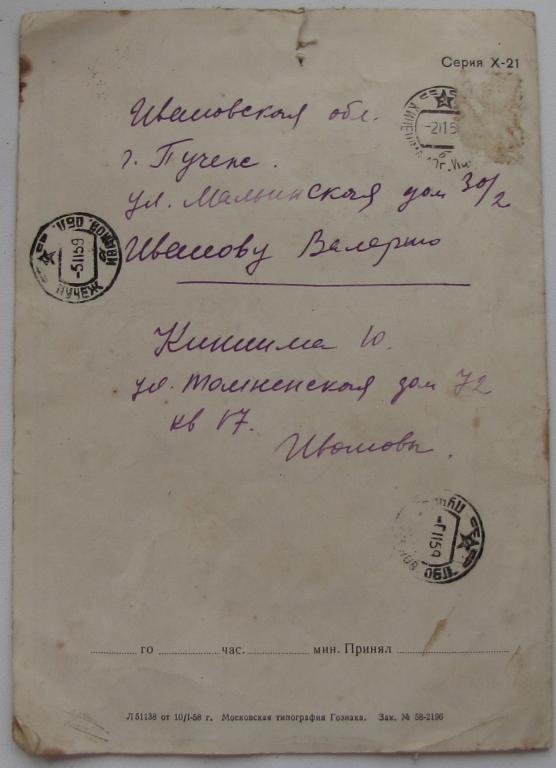 Серия X-21
Ивановская обл.
г. Пучеж.
ул. Мальинская дом 30/2
Иванову Валерию
Кинешма 10.
ул. Томненская дом 72
кв 17.
Ивановы.
-2 11 5
ИВАНОВ. ОБЛ.
-5 11 59
ПУЧЕЖ
11 59
го час. мин. Принял
Л51138 от 10/I-58 г. Московская типография Гознака. Зак. № 58-2196